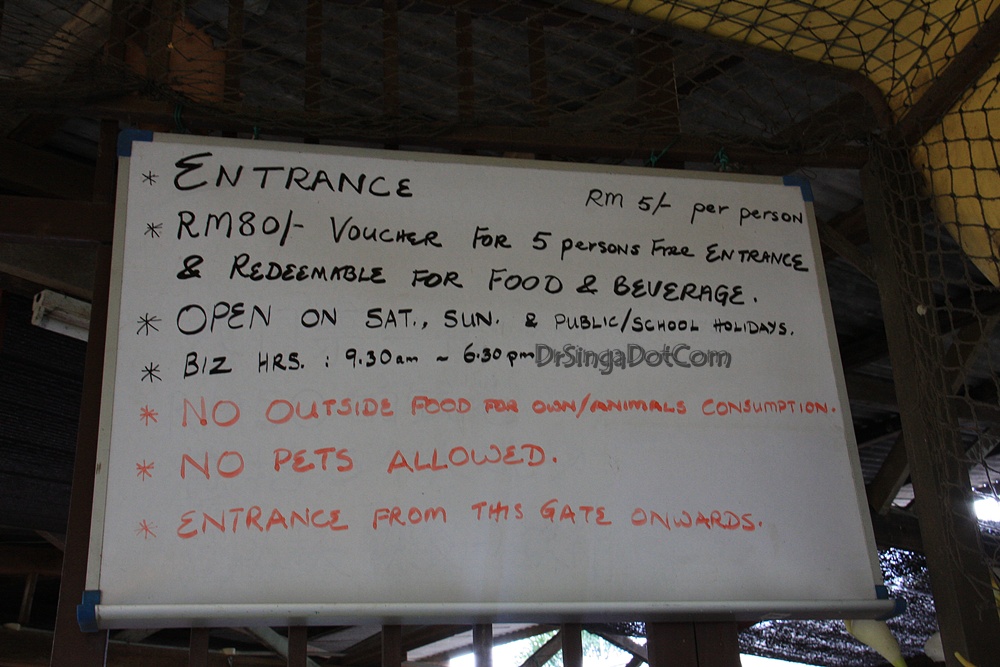 * ENTRANCE RM 5/- per person
* RM80/- VOUCHER FOR 5 persons FREE ENTRANCE
& REDEEMABLE FOR FOOD & BEVERAGE.
* OPEN ON SAT., SUN. & PUBLIC/SCHOOL HOLIDAYS.
* BIZ HRS. : 9.30am ~ 6.30pm DrSingaDotCom
* NO OUTSIDE FOOD FOR OWN/ANIMALS CONSUMPTION.
* NO PETS ALLOWED.
* ENTRANCE FROM THIS GATE ONWARDS.